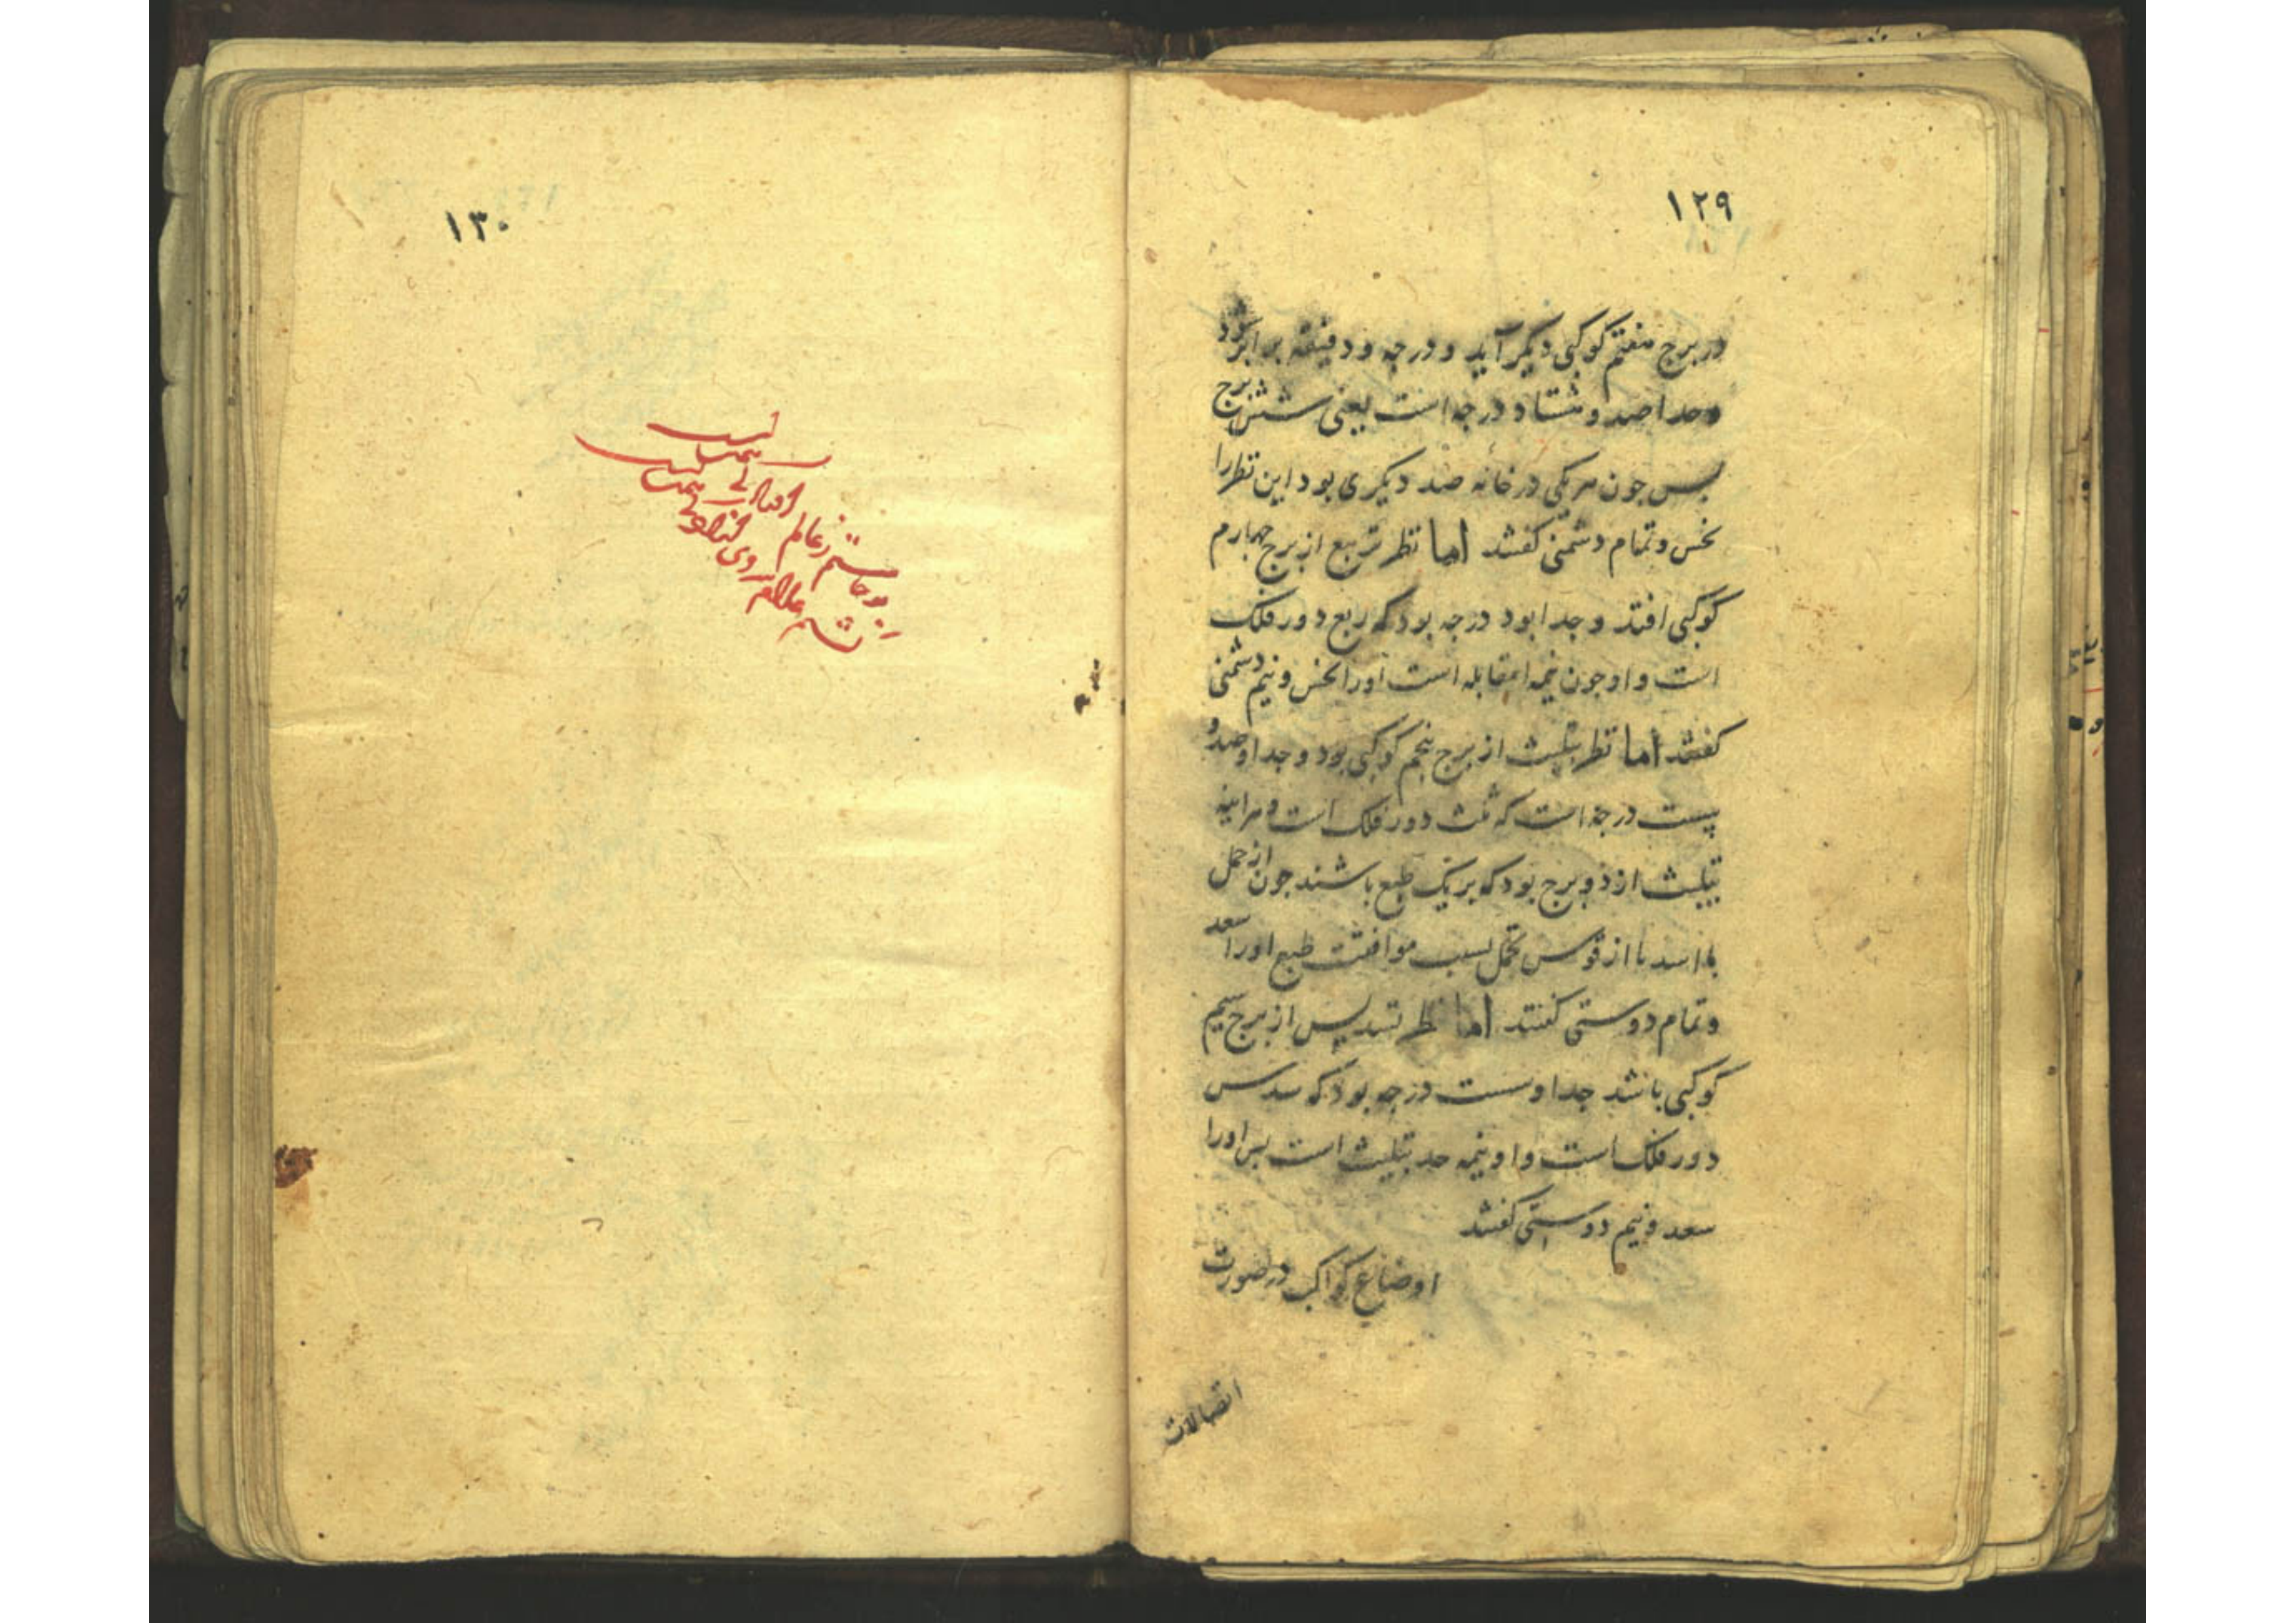 ۱۲۹
در برج هفتم کوکبی دیکر آید و درجه و دقیقه برابر بود
وحد اصد و هشتاد درجه است یعنی شش برج
پس جون هریکی در خانه ضد دیکری بود این نظر را
نحس و تمام دشمنی کفتند اما نظر تربیع از برج چهارم
کوکبی افتد و حد ابود درجه بود که ربع دور فلک
است و او جون نیمه امقابله است اورا نحس و نیم دشمنی
کفتند اما نظر تثلیث از برج پنجم کوکبی بود و حد او صد و
بیست درجه است که ثلث دور فلک است و هراینه
تثلیث از دو برج بود که بر یک طبع باشند جون از حمل
با اسد یا از قوس بحمل بسبب موافقت طبع اورا سعد
و تمام دوستی کفتند اما نظر تسدیس از برج سیم
کوکبی باشد حد او شست درجه بود که سدس
دور فلک است و او نیمه حد تثلیث است پس اورا
سعد و نیم دوستی کفتند
اوضاع کواکب در صورت
اتصالات
۱۳۰